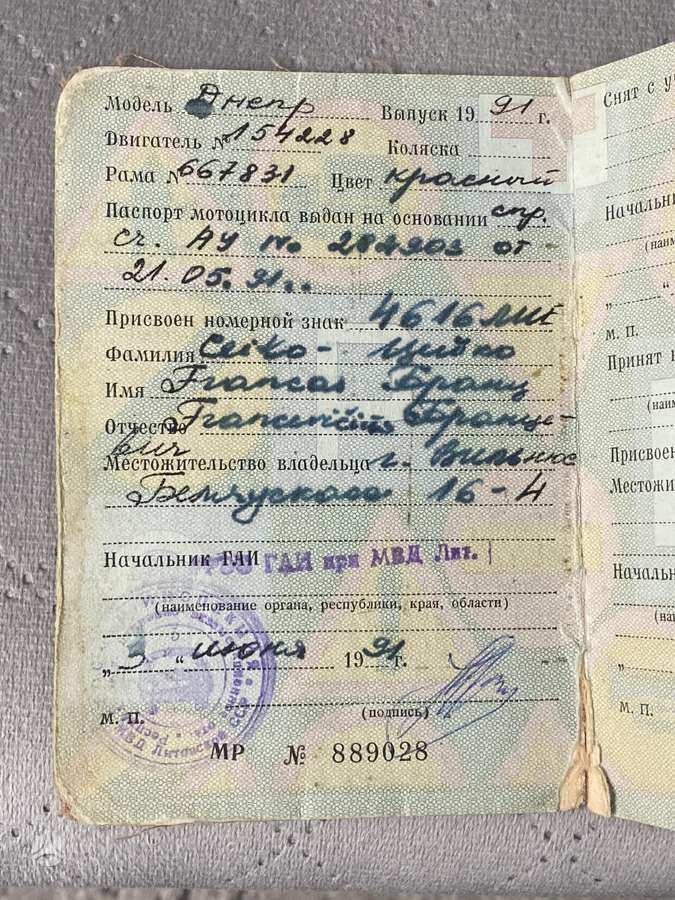 Модель Днепр Выпуск 1991 г.
Двигатель № 154228 Коляска
Рама № 667831 Цвет красный
Паспорт мотоцикла выдан на основании спр.
сч. АУ № от
21.05.91г.
Присвоен номерной знак 4616ЛИЕ
Фамилия Ceiko - Цейко
Имя Francas Франц
Отчество Франце-
вич
Местожительство владельца г. Вильнюс
16-4
Начальник ГАИ ГАИ при МВД Лит.
(наименование органа, республики, края, области)
„3“ июня 1991 г.
М. П. (подпись)
МР № 889028
Снят с у
Начальн
(наим
„ “
м. п.
Принят н
(наим
Присвоен
Местожи
Начальн
(на
„
м. п.